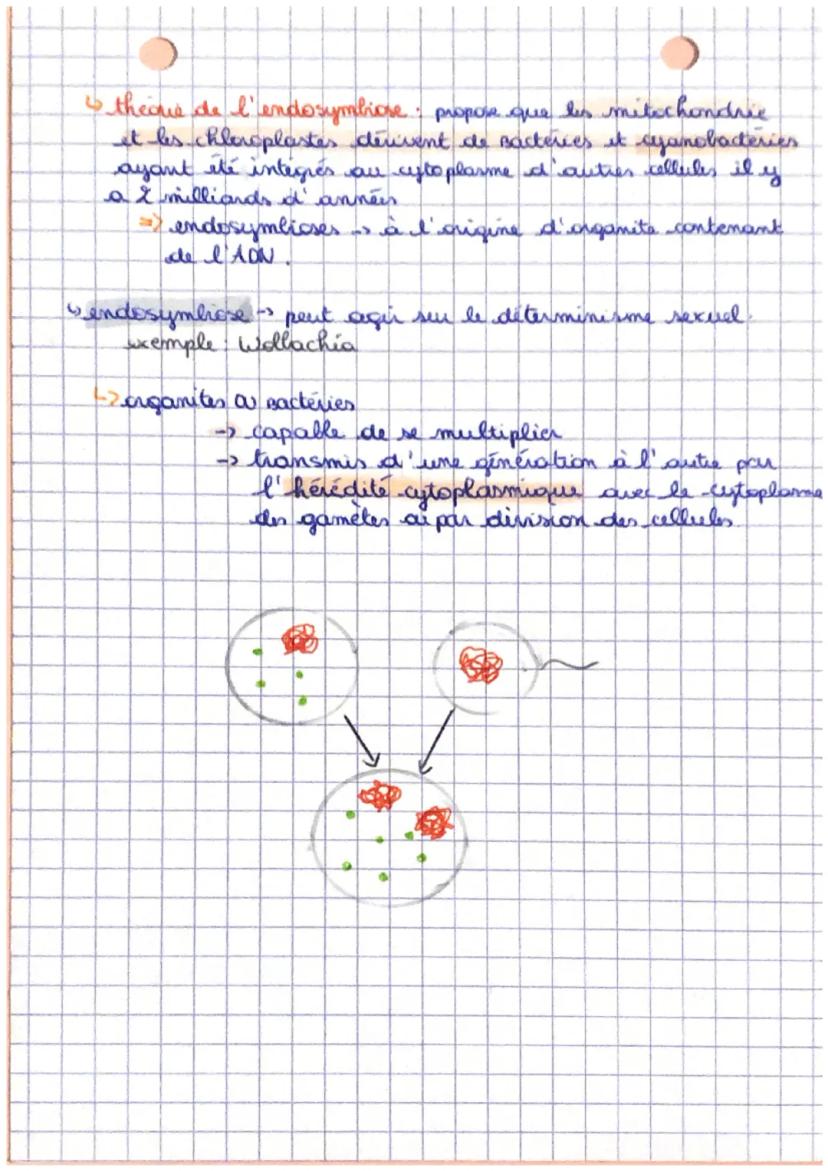 ↳ théorie de l'endosymbiose : propose que les mitochondrie
et les chloroplastes dérivent de Bactéries et cyanobactéries
ayant été intégrés au cytoplasme d'autres cellules il y
a 2 milliards d'années
=> endosymbioses -> à l'origine d'organite contenant
de l'ADN.
↳ endosymbiose -> peut agir sur le déterminisme sexuel.
exemple : Wolbachia
↳ organites Bactéries
-> capable de se multiplier
-> transmis d'une génération à l'autre par
l'hérédité cytoplasmique avec le cytoplasme
des gamètes par division des cellules.